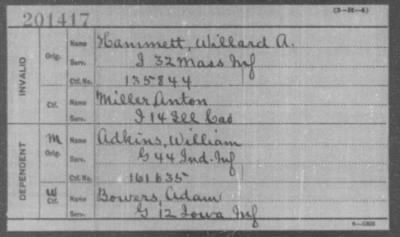 201417
(3-26-4)
INVALID
Orig. Name Hammett, Willard A.
Serv. I 32 Mass Inf
Ctf. No. 135844
Ctf. Name Miller Anton
Serv. I 14 Ill Cav
DEPENDENT
M Orig. Name Adkins, William
Serv. G 44 Ind. Inf
Ctf. No. 161635
W Ctf. Name Bowers, Adam
Serv. G 12 Iowa Inf